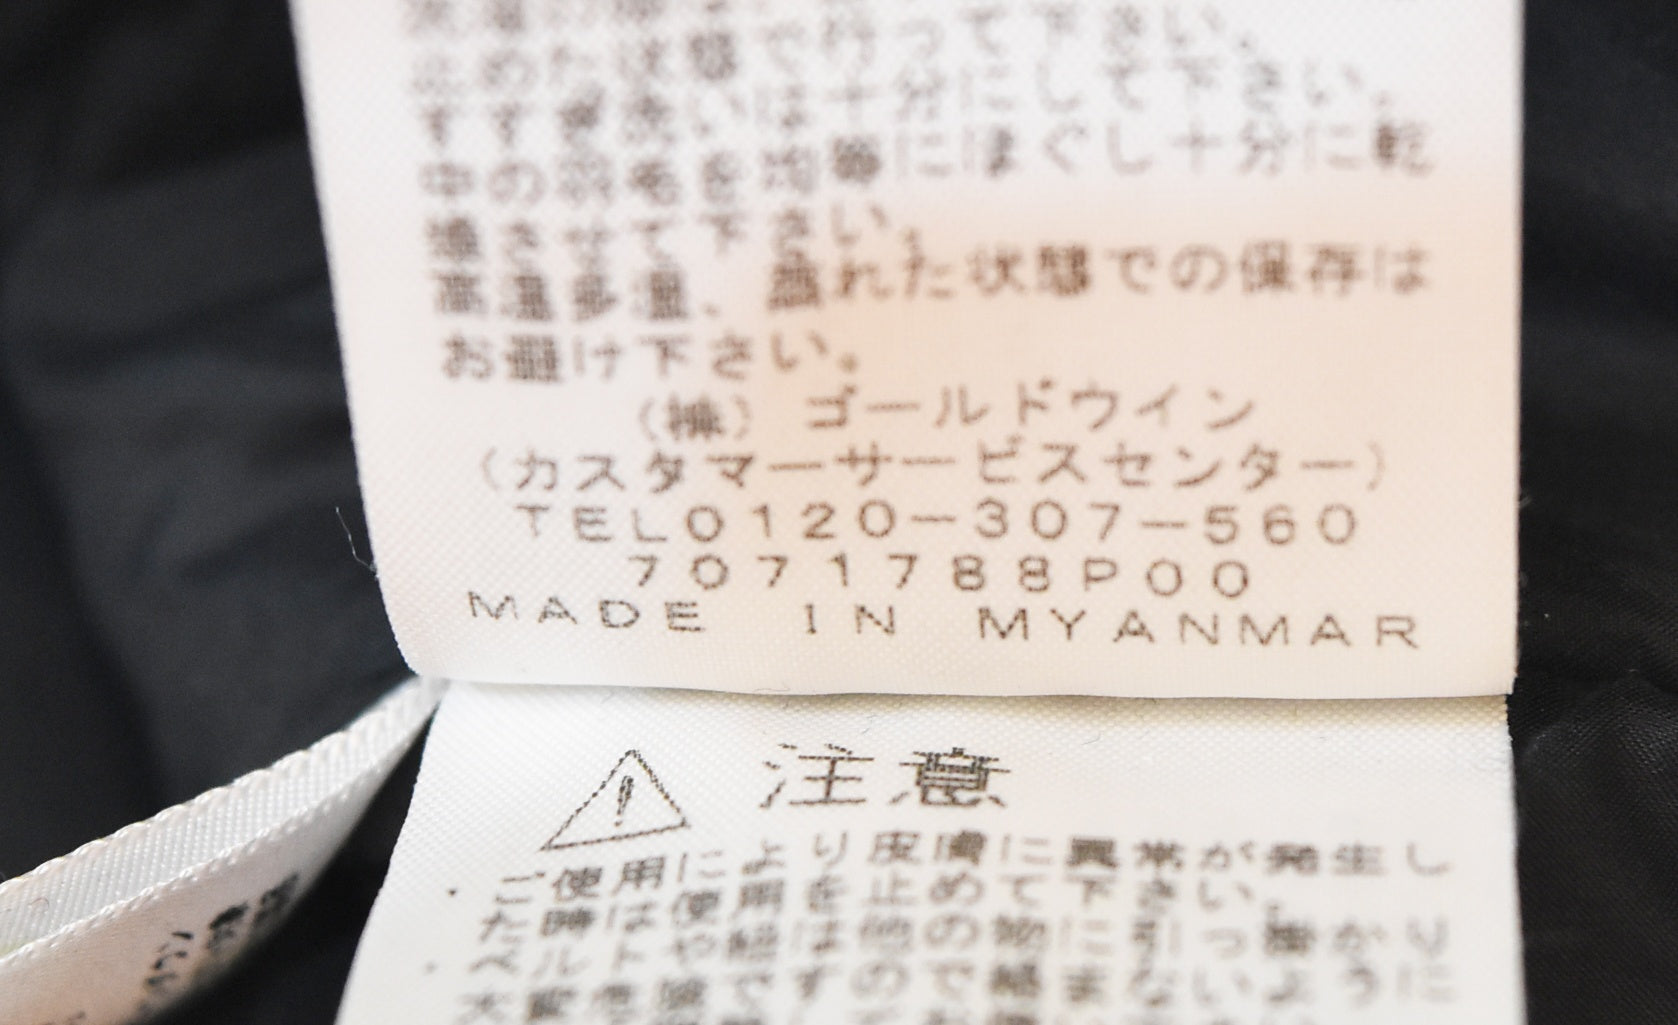 で行って下さい。
は十分にして下さい。
中の羽毛を均等にほぐし十分に乾
燥させて下さい。
高温多湿、濡れた状態での保存は
お避け下さい。
(株) ゴールドウイン
(カスタマーサービスセンター)
TEL0120-307-560
7071788P00
MADE IN MYANMAR
注意
ご使用により皮膚に異常が発生し
た時は使用を止めて下さい。
ベルトや紐は他の物に引っ掛かり
大変危険ですので絡まないように